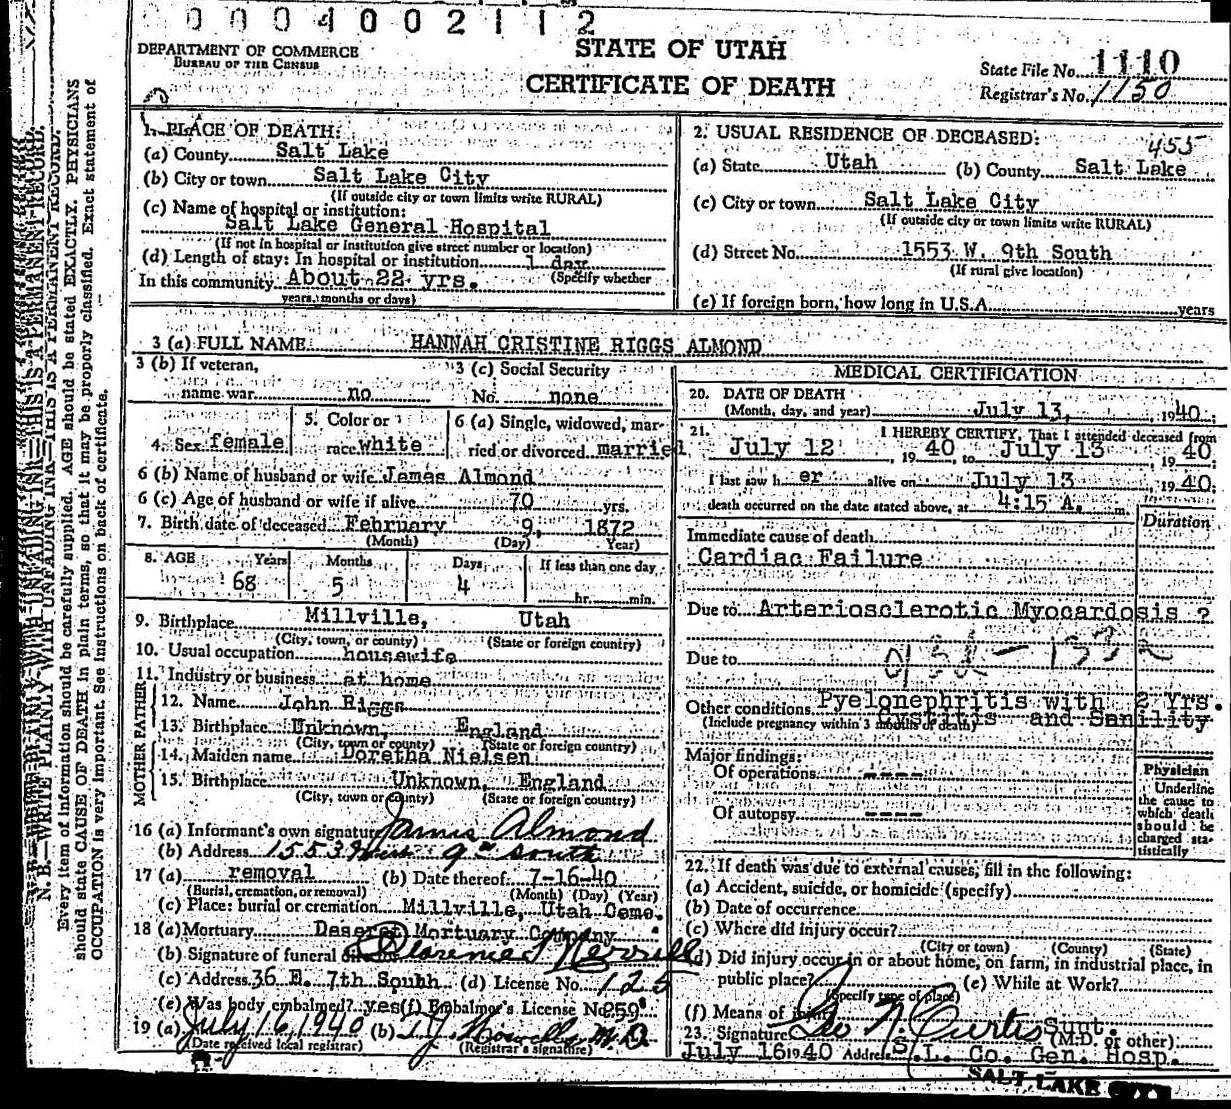 0004002112
DEPARTMENT OF COMMERCE
BUREAU OF THE CENSUS
STATE OF UTAH
CERTIFICATE OF DEATH
State File No. 1110
Registrar's No. 1150
N. B.—WRITE PLAINLY WITH UNFADING INK—THIS IS A PERMANENT RECORD.
Every item of information should be carefully supplied. AGE should be stated EXACTLY. PHYSICIANS
should state CAUSE OF DEATH in plain terms, so that it may be properly classified. Exact statement of
OCCUPATION is very important. See instructions on back of certificate.
1. PLACE OF DEATH:
(a) County Salt Lake
(b) City or town Salt Lake City
(If outside city or town limits write RURAL)
(c) Name of hospital or institution:
Salt Lake General Hospital
(If not in hospital or institution give street number or location)
(d) Length of stay: In hospital or institution 1 day
(Specify whether
In this community About 22 yrs.
years, months or days)
2. USUAL RESIDENCE OF DECEASED: 455
(a) State Utah (b) County Salt Lake
(c) City or town Salt Lake City
(If outside city or town limits write RURAL)
(d) Street No. 1553 W. 9th South
(If rural give location)
(e) If foreign born, how long in U.S.A. years
3 (a) FULL NAME HANNAH CRISTINE RIGGS ALMOND
3 (b) If veteran,
name war no
3 (c) Social Security
No. none
4. Sex female
5. Color or
race white
6 (a) Single, widowed, mar-
ried or divorced married
6 (b) Name of husband or wife James Almond
6 (c) Age of husband or wife if alive 70 yrs.
7. Birth date of deceased February 9, 1872
(Month) (Day) (Year)
8. AGE Years Months Days If less than one day
68 5 4 hr. min.
9. Birthplace Millville, Utah
(City, town, or county) (State or foreign country)
10. Usual occupation housewife
11. Industry or business at home
FATHER
12. Name John Riggs
13. Birthplace Unknown, England
(City, town or county) (State or foreign country)
MOTHER
14. Maiden name Doretha Nielsen
15. Birthplace Unknown, England
(City, town or county) (State or foreign country)
16 (a) Informant's own signature James Almond
(b) Address 1553 West 9th South
17 (a) removal (b) Date thereof 7-16-40
(Burial, cremation, or removal) (Month) (Day) (Year)
(c) Place: burial or cremation Millville, Utah Ceme.
18 (a) Mortuary Deseret Mortuary Company
(b) Signature of funeral
(c) Address 36 E. 7th South (d) License No. 125
(e) Was body embalmed? yes (f) Embalmer's License No. 259
19 (a) July 16, 1940 (b) M.D.
(Date received local registrar) (Registrar's signature)
MEDICAL CERTIFICATION
20. DATE OF DEATH
(Month, day, and year) July 13, 1940.
21. I HEREBY CERTIFY, That I attended deceased from
July 12, 1940 to July 13, 1940
I last saw her alive on July 13 1940.
death occurred on the date stated above, at 4:15 A. m.
Duration
Immediate cause of death
Cardiac Failure
Due to Arteriosclerotic Myocardosis ?
Due to
Other conditions Pyelonephritis with 2 Yrs.
(Include pregnancy within 3 months of death)
Cystitis and Sanility
Major findings:
Of operations ----
Of autopsy ----
Physician
Underline
the cause to
which death
should be
charged sta-
tistically
22. If death was due to external causes, fill in the following:
(a) Accident, suicide, or homicide (specify)
(b) Date of occurrence
(c) Where did injury occur?
(City or town) (County) (State)
(d) Did injury occur in or about home, on farm, in industrial place, in
public place? (e) While at Work?
(Specify type of place)
(f) Means of injury
23. Signature Geo N. Curtis Supt.
(M.D. or other)
July 16 1940 Address S. L. Co. Gen. Hosp.
SALT LAKE CITY